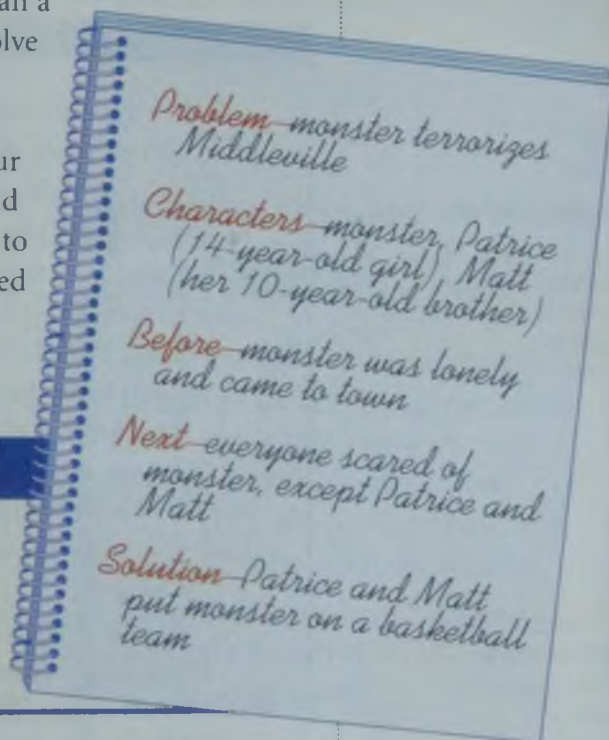 an a
olve
ur
d
to
ed
Problem—monster terrorizes
Middleville
Characters—monster, Patrice
(14-year-old girl), Matt
(her 10-year-old brother)
Before—monster was lonely
and came to town
Next—everyone scared of
monster, except Patrice and
Matt
Solution—Patrice and Matt
put monster on a basketball
team